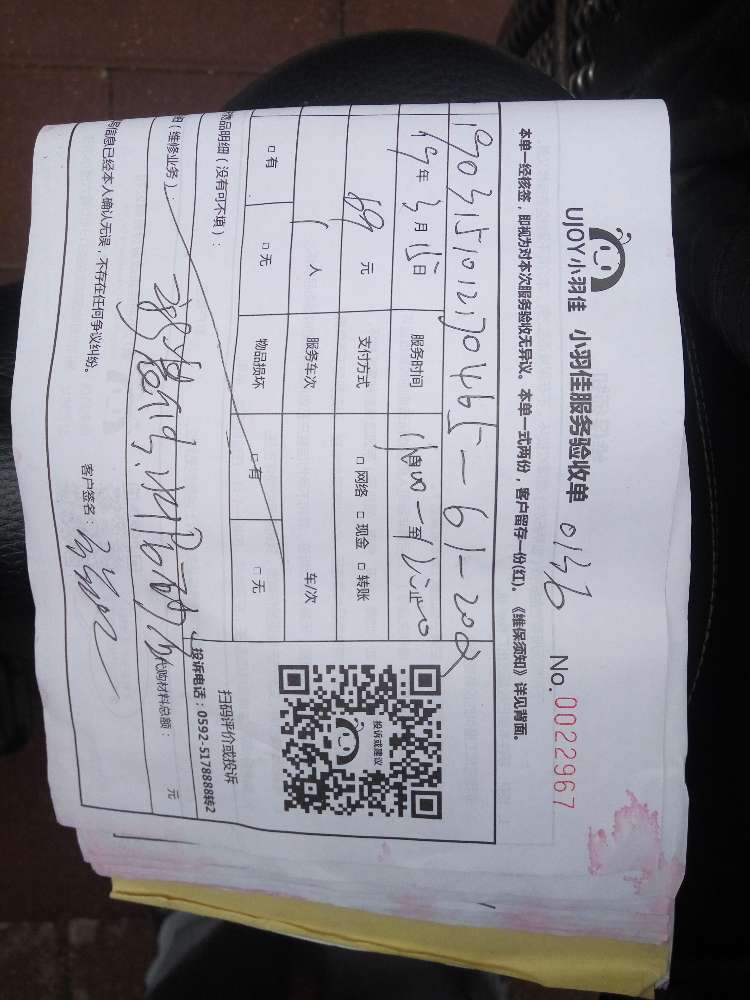 UJOY小羽佳 小羽佳服务验收单 0136 No.0022967
本单一经核签，即视为对本次服务验收无异议。本单一式两份，客户留存一份(红)。《维保须知》详见背面。
19年3月15日 服务时间 至
69元 支付方式 □ 网络 □ 现金 □ 转账
1人 服务车次 车/次
□ 有 □ 无 物品损坏 □ 有 □ 无
投诉或建议
扫码评价或投诉
投诉电话：0592-5178888转2
物品明细（没有可不填）：
（维修业务）： 代购材料总额： 元
信息已经本人确认无误，不存在任何争议纠纷。 客户签名：